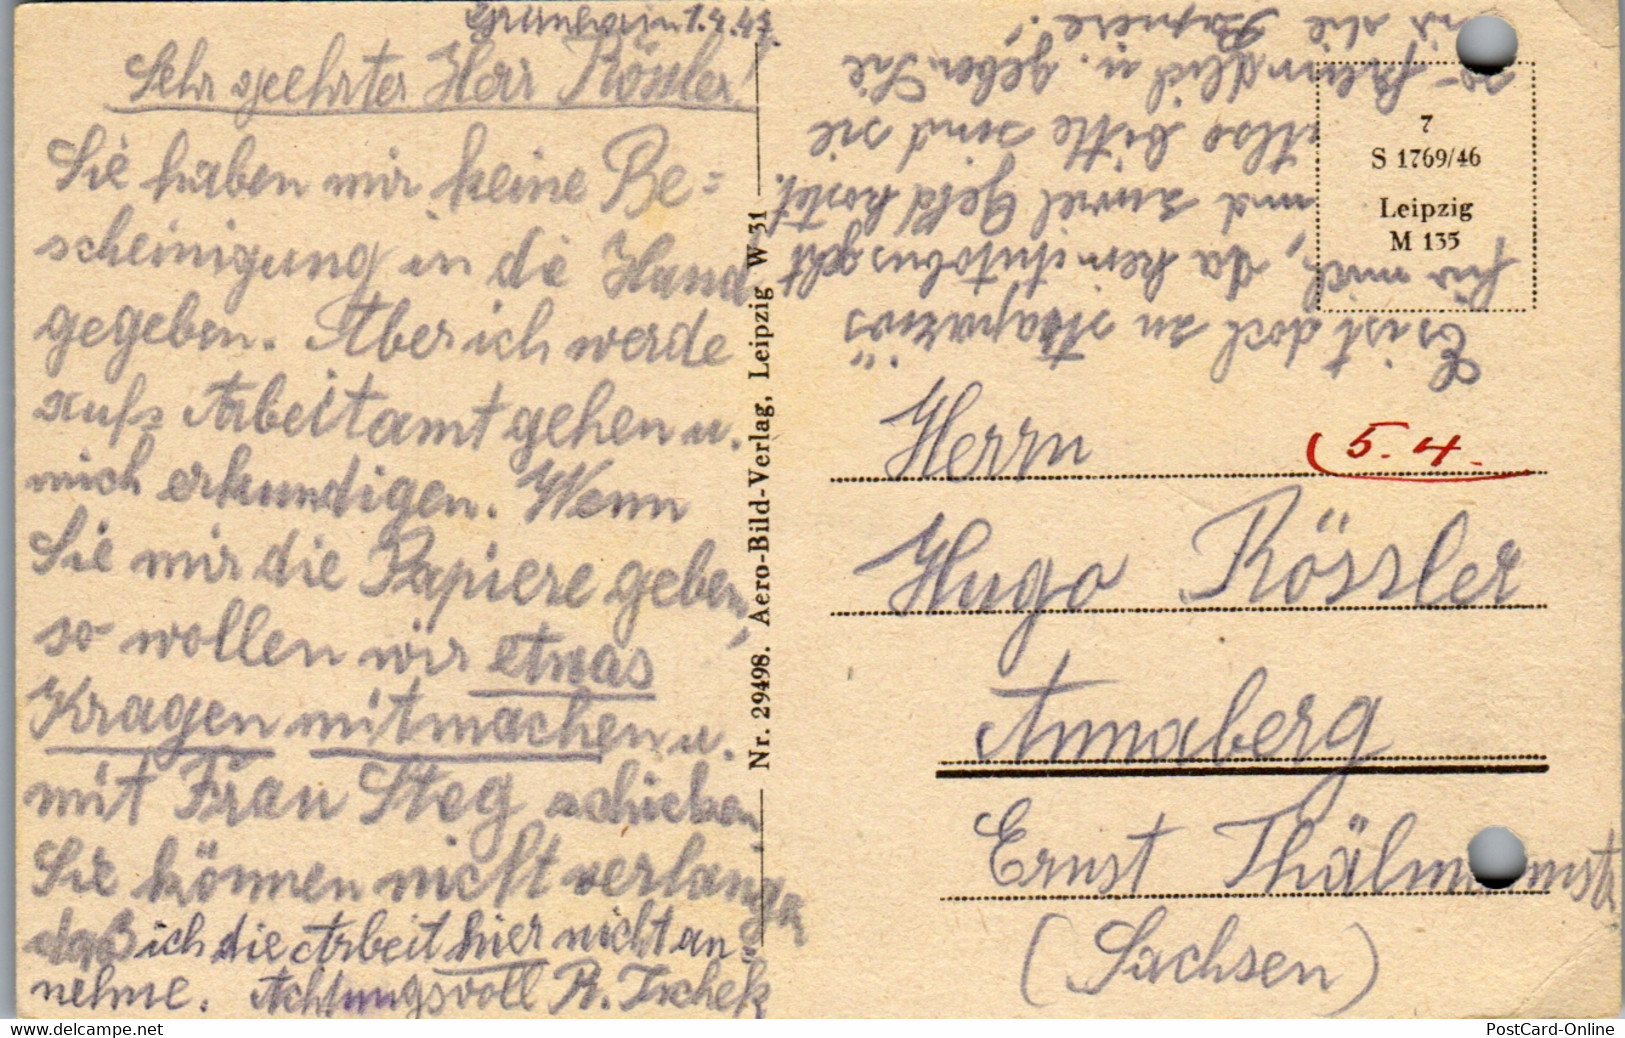 1.4.47.
Sehr geehrter Herr Rössler!
Sie haben mir keine Be=
scheinigung in die Hand
gegeben. Aber ich werde
aufs Arbeitamt gehen u.
mich erkundigen. Wenn
Sie mir die Papiere geben,
so wollen wir etwas
Kragen mitmachen u.
mit Frau Steg schicken
Sie können nicht verlangen
daß ich die Arbeit hier nicht an=
nehme. Achtungsvoll R. Tschek
Es ist doch zu
für mich, da kein Autobus geht
und zuviel Geld kostet.
Also bitte sind sie
so freundlich u. geben Sie
mir die Papiere!
7
S 1769/46
Leipzig
M 135
Nr. 29498. Aero-Bild-Verlag, Leipzig W 31
5.4.
Herrn
Hugo Rössler
Annaberg
Ernst Thälmannstr
(Sachsen)
PostCard-Online
www.delcampe.net